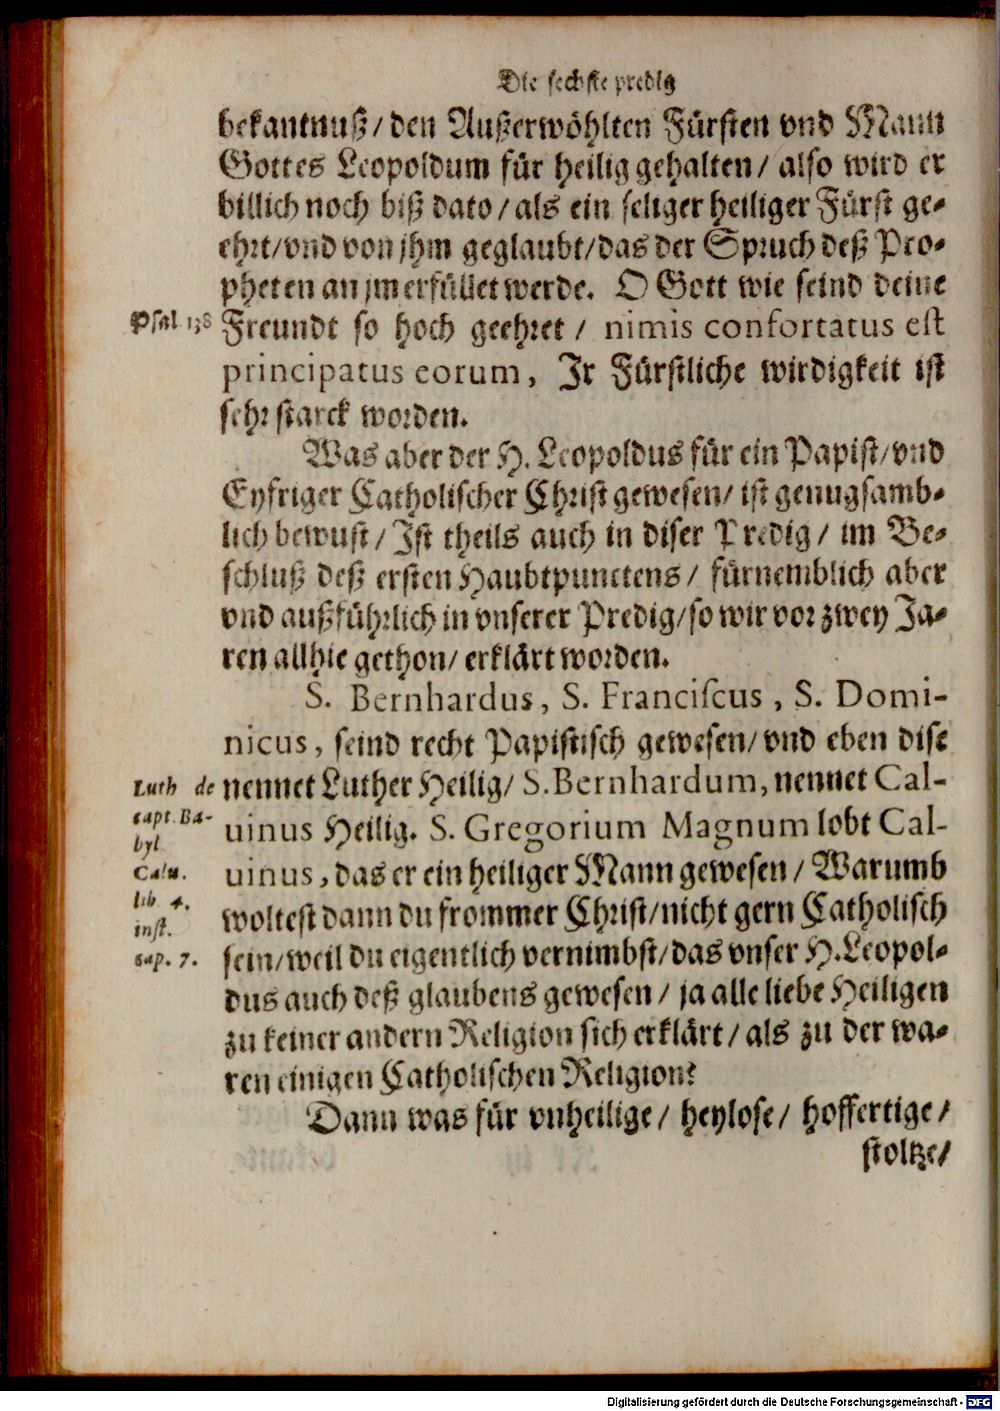 Die sechste predig
bekantnuß/den Außerwöhlten Fürsten vnd Mann
Gottes Leopoldum für heilig gehalten/ also wird er
billich noch biß dato/ als ein seliger heiliger Fürst ge-
ehrt/vnd von jhm geglaubt/das der Spruch deß Pro-
pheten an jm erfüllet werde. O Gott wie seind deine
Psal 138
Freundt so hoch geehret / nimis confortatus est
principatus eorum, Jr Fürstliche wirdigkeit ist
sehr starck worden.
Was aber der H. Leopoldus für ein Papist/vnd
Eyfriger Catholischer Christ gewesen/ ist genugsamb-
lich bewust/ Jst theils auch in diser Predig/ im Be-
schluß deß ersten Haubtpunctens/ fürnemblich aber
vnd außführlich in vnserer Predig/so wir vor zwey Ja-
ren allhie gethon/ erklärt worden.
S. Bernhardus, S. Franciscus, S. Domi-
nicus, seind recht Papistisch gewesen/vnd eben dise
nennet Luther Heilig/ S. Bernhardum, nennet Cal-
uinus Heilig. S. Gregorium Magnum lobt Cal-
uinus, das er ein heiliger Mann gewesen/ Warumb
woltest dann du frommer Christ/nicht gern Catholisch
sein/weil du eigentlich vernimbst/das vnser H. Leopol-
dus auch deß glaubens gewesen/ ja alle liebe Heiligen
zu keiner andern Religion sich erklärt/ als zu der wa-
ren einigen Catholischen Religion?
Luth de
capt. Ba-
byl.
Calu.
lib 4.
inst.
cap. 7.
Dann was für vnheilige/ heylose/ hoffertige/
stoltze/
Digitalisierung gefördert durch die Deutsche Forschungsgemeinschaft - DFG